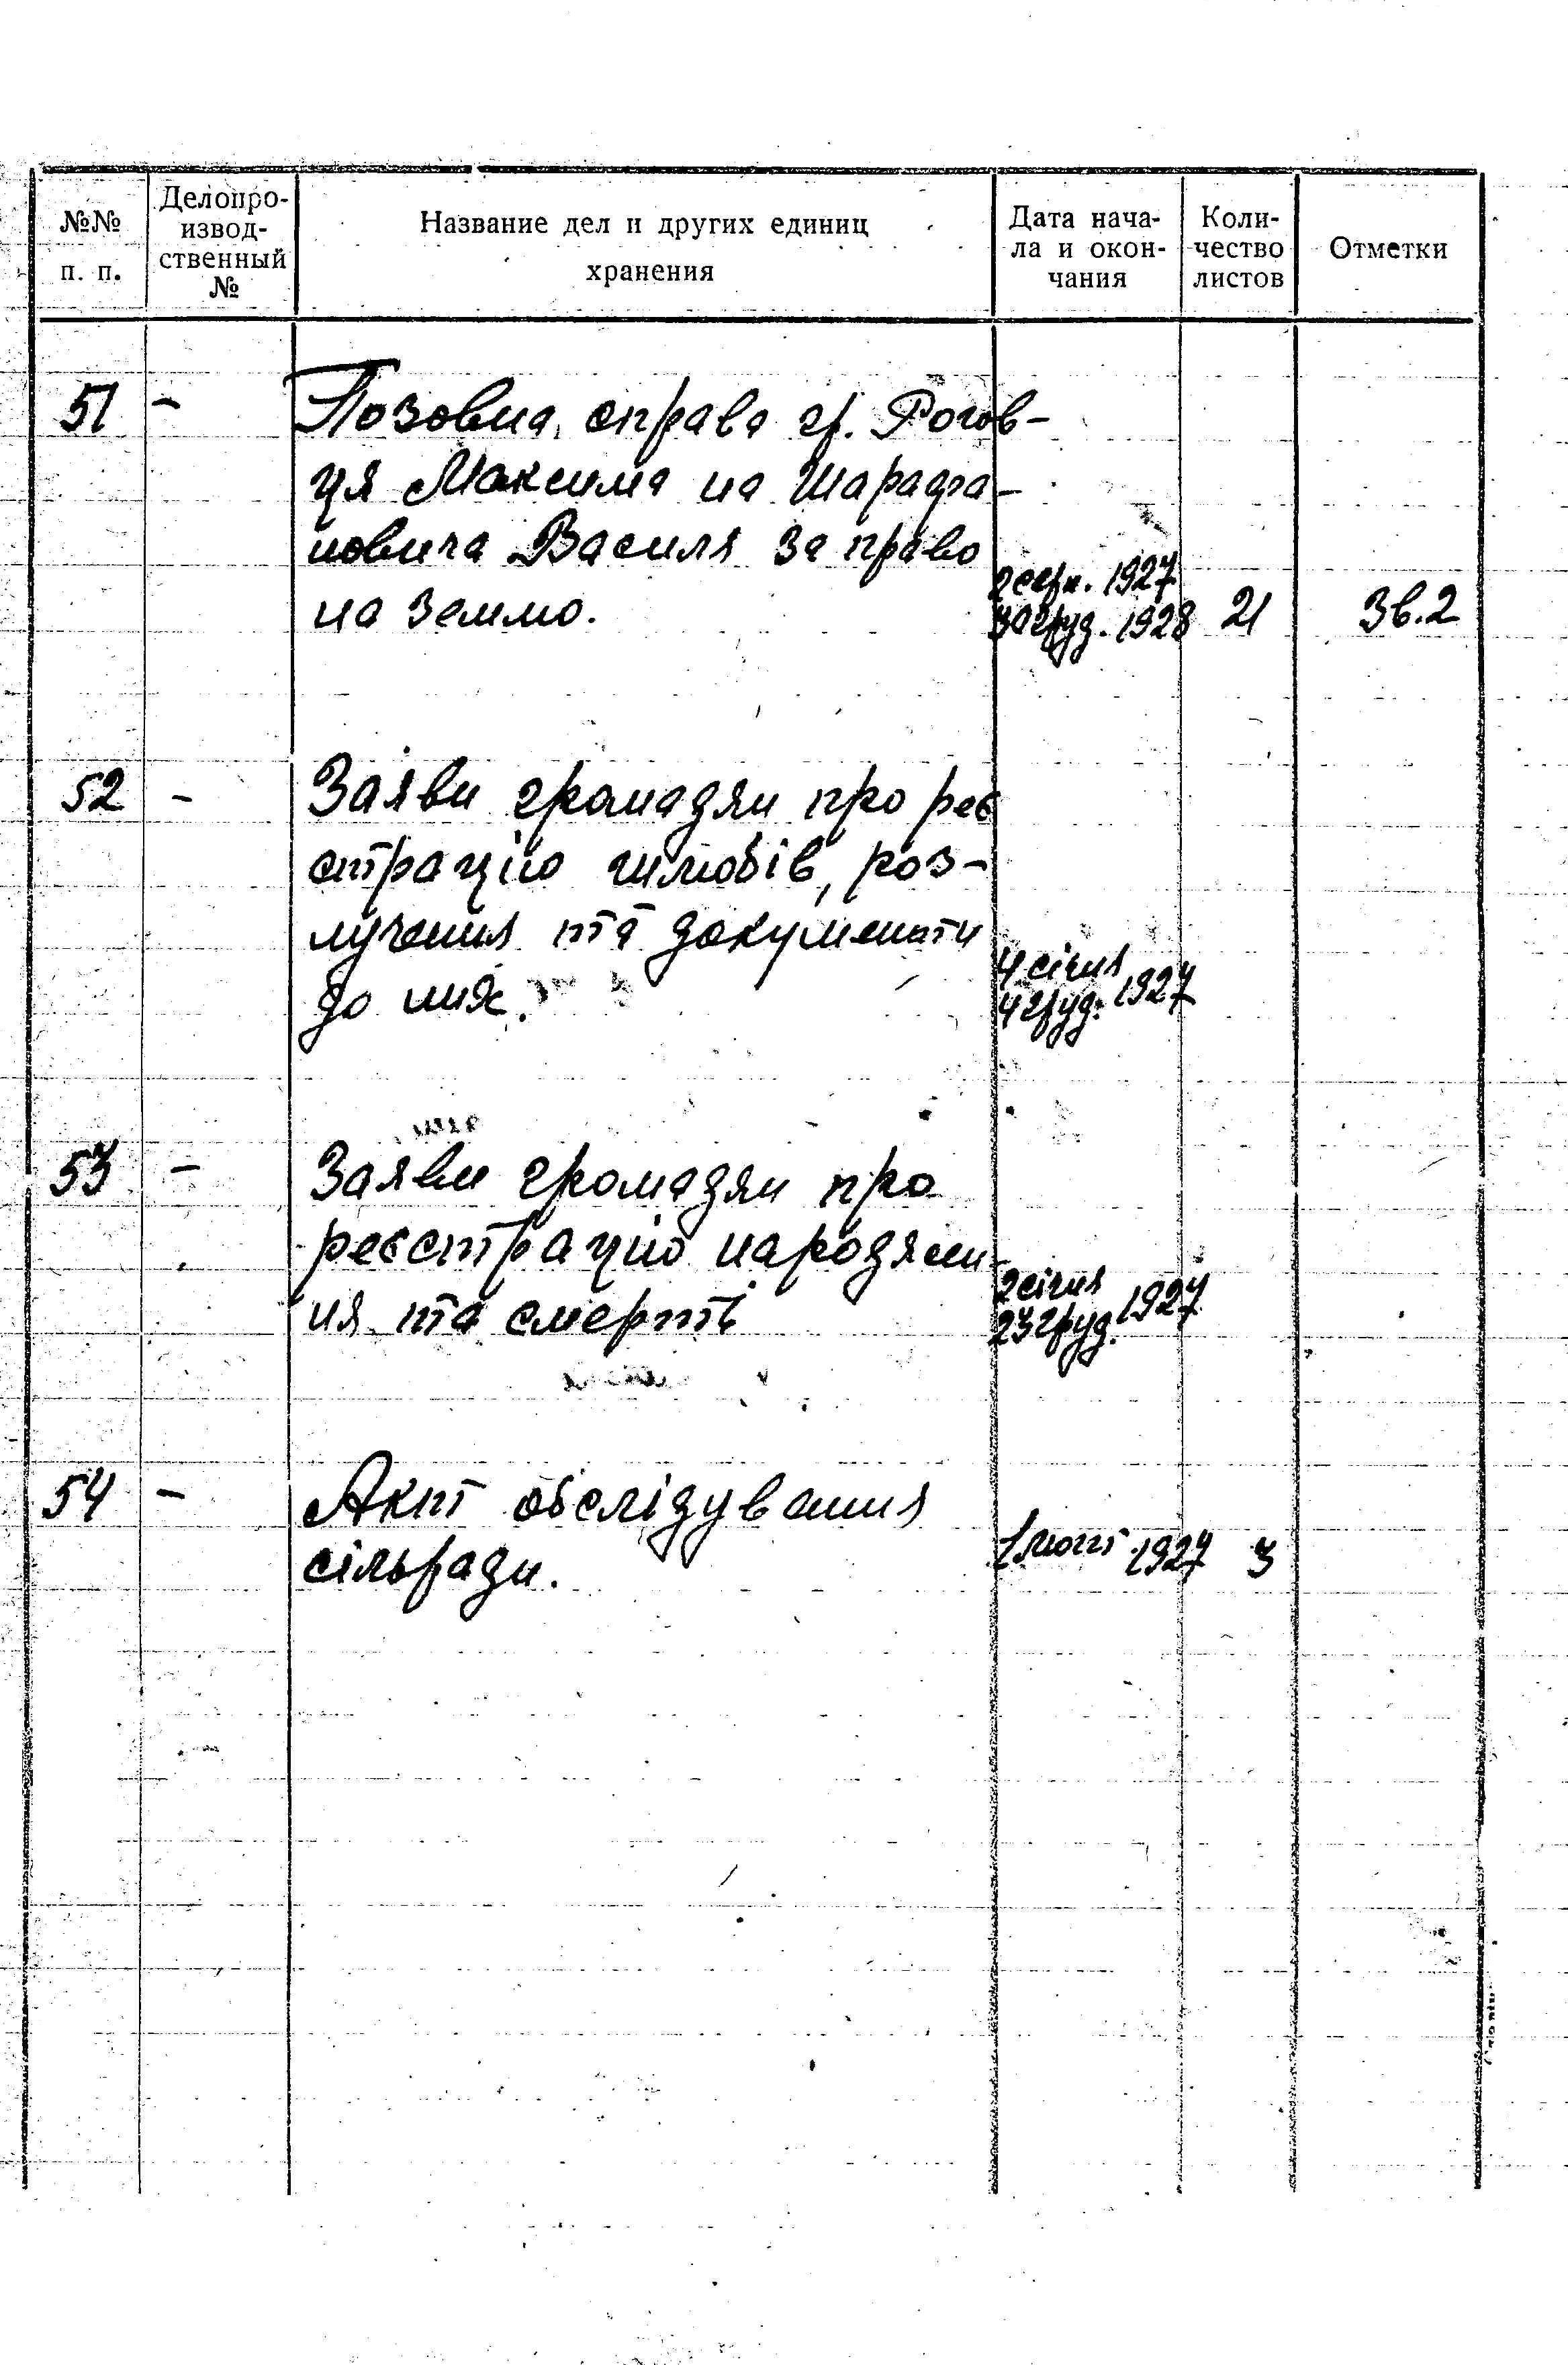 №№ п. п.
Делопро-
извод-
ственный
№
Название дел и других единиц
хранения
Дата нача-
ла и окон-
чания
Коли-
чество
листов
Отметки
51 – Позовна справа гр. Рогов-
ця Максима на
новича Василя за право
на землю.
2 серп. 1927
30 груд. 1928
21
Зв. 2
52 – Заяви громадян про реє
страцію шлюбів, роз-
лучення та документи
до них.
4 січня
4 груд. 1927
53 – Заяви громадян про
реєстрацію народжен-
ня та смерті
2 січня
23 груд. 1927
54 – Акт обслідування
сільради.
1 лют 1927
3